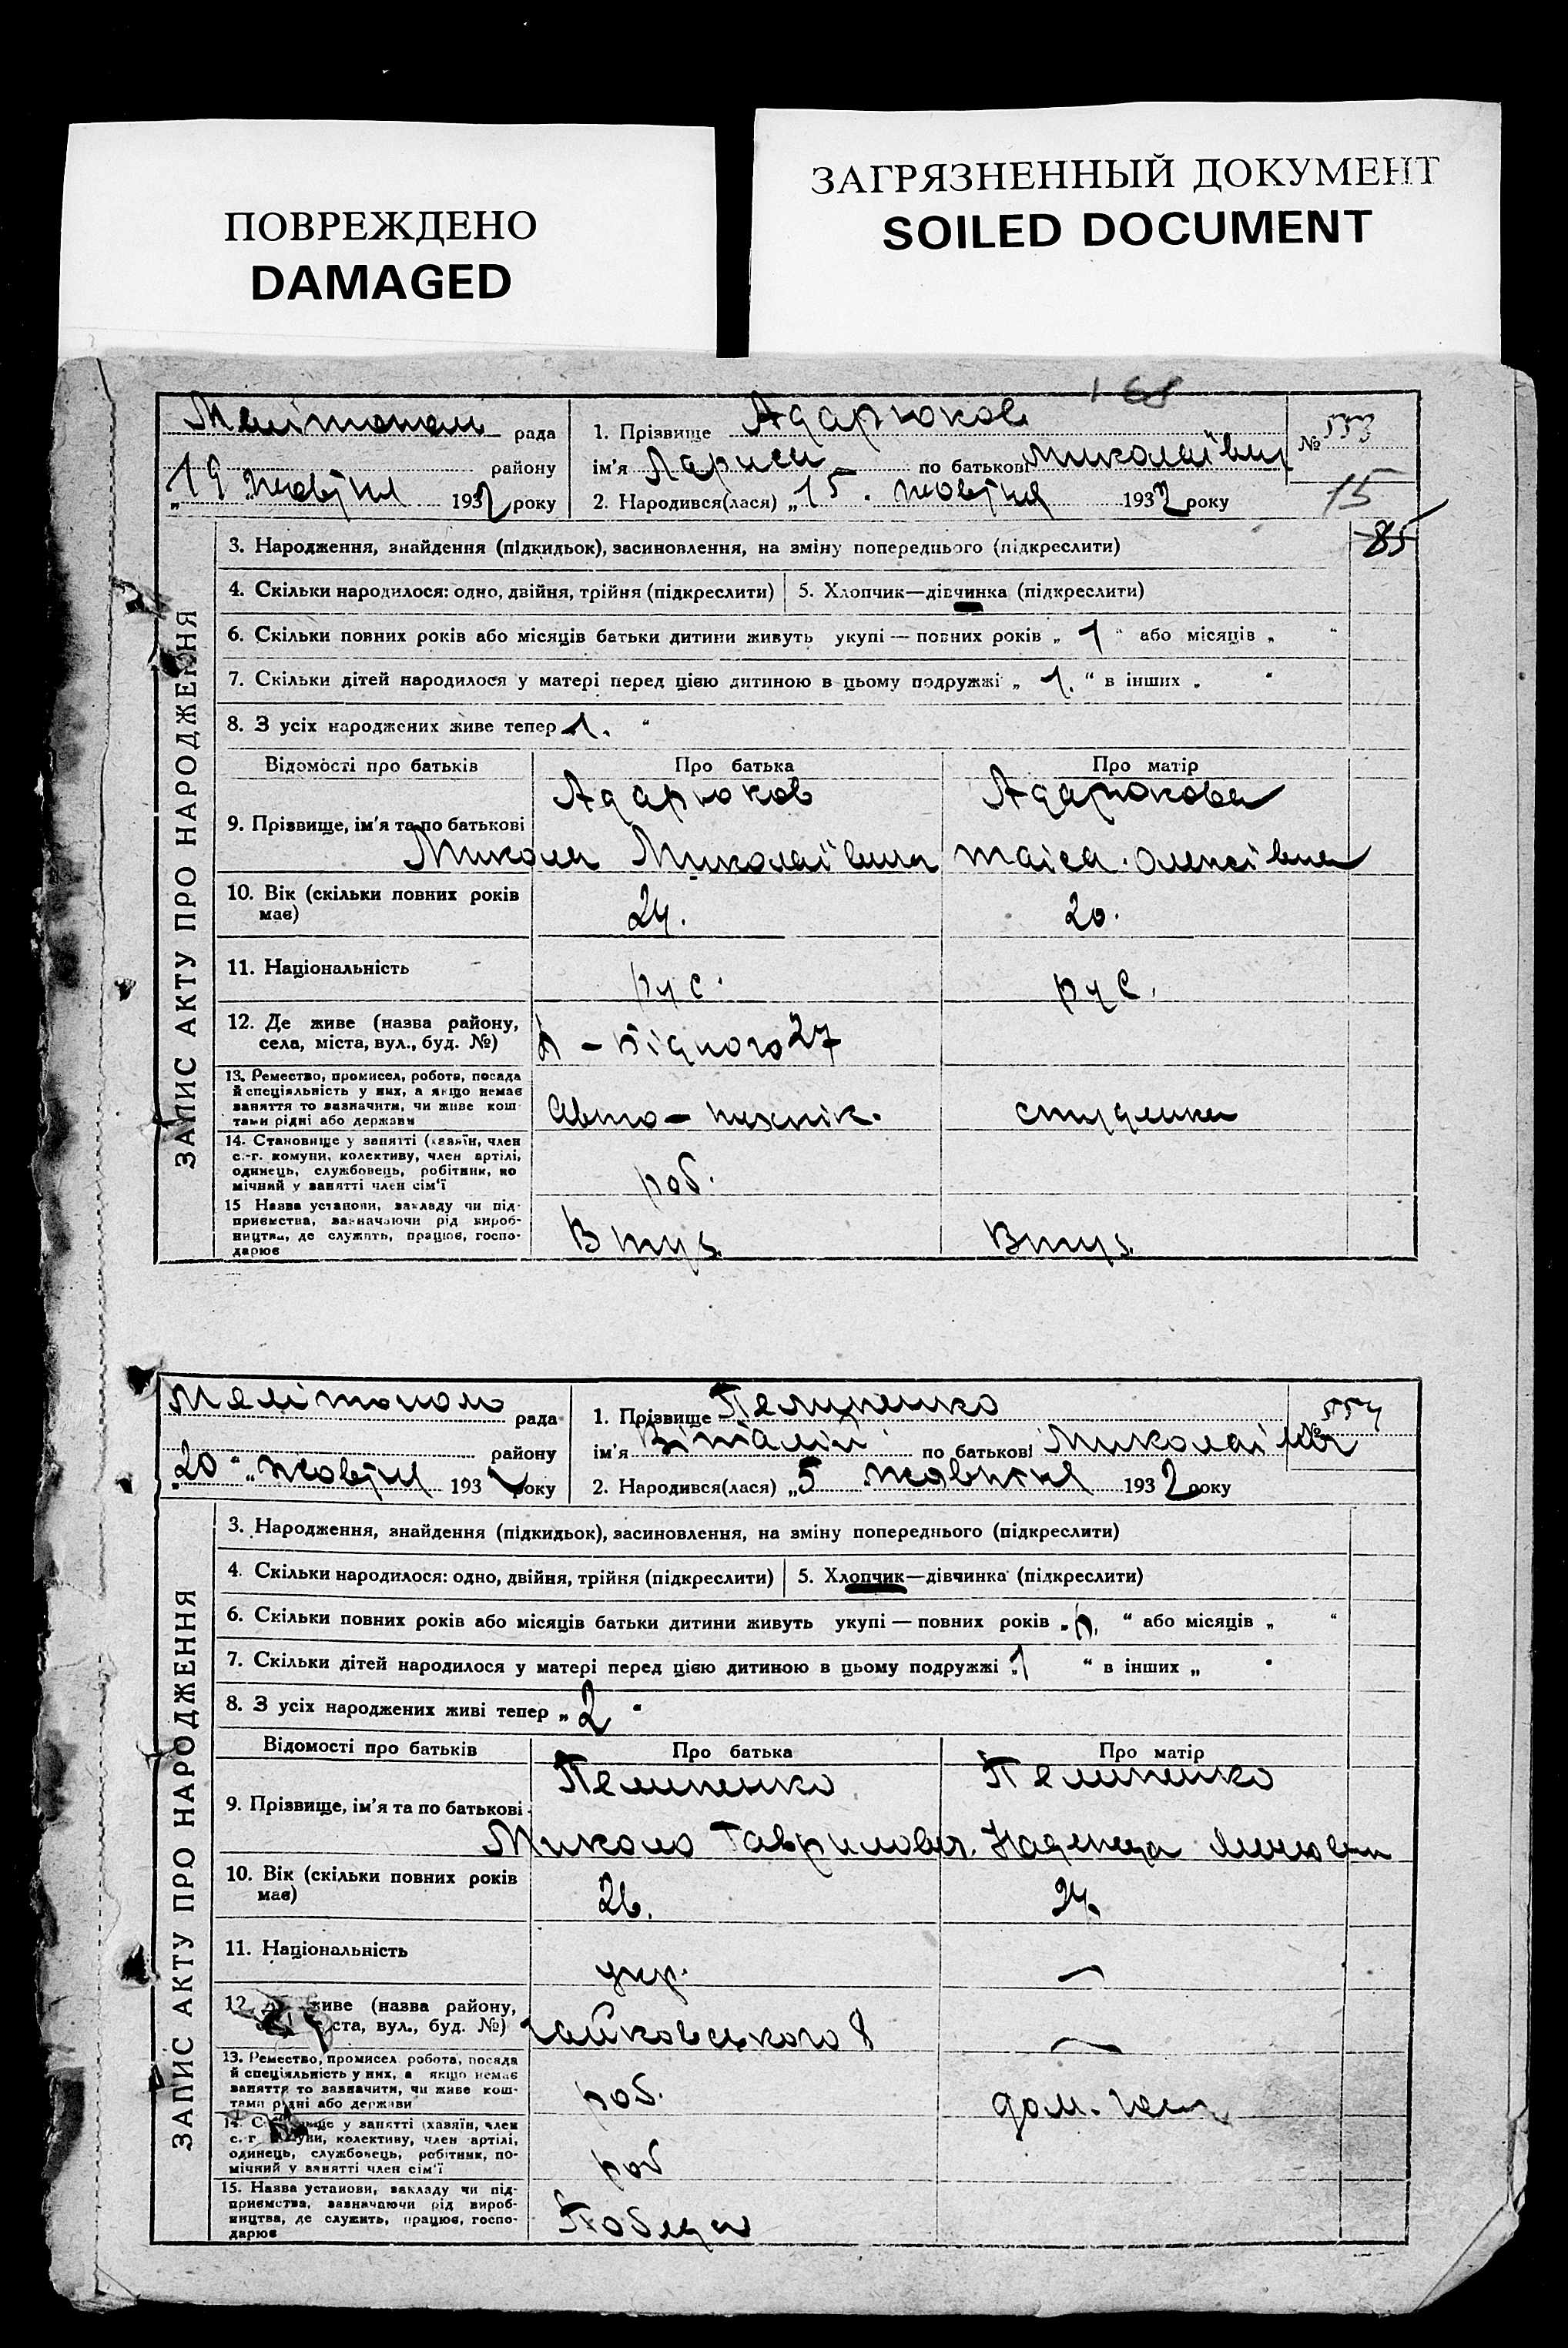 ПОВРЕЖДЕНО
DAMAGED
ЗАГРЯЗНЕННЫЙ ДОКУМЕНТ
SOILED DOCUMENT
ЗАПИС АКТУ ПРО НАРОДЖЕННЯ
Мелітополь рада
району
„19 жовтня 1932 року
1. Прізвище Адарюков
ім'я Лариса по батькові Миколаївна
2. Народився(лася) „15. жовтня 1932 року
№ 553
15
85
3. Народження, знайдення (підкидьок), засиновлення, на зміну попереднього (підкреслити)
4. Скільки народилося: одно, двійня, трійня (підкреслити) 5. Хлопчик—дівчинка (підкреслити)
6. Скільки повних років або місяців батьки дитини живуть укупі — повних років „ 1 “ або місяців „ “
7. Скільки дітей народилося у матері перед цією дитиною в цьому подружжі „ 1. “ в інших „ “
8. З усіх народжених живе тепер 1. “
Відомості про батьків Про батька Про матір
9. Прізвище, ім'я та по батькові
Адарюков Адарюкова
Микола Миколаївич Таїса Олексіївна
10. Вік (скільки повних років має) 24. 20.
11. Національність рус. рус.
12. Де живе (назва району, села, міста, вул., буд. №) Бідного 27
13. Ремество, промисел, робота, посада
й спеціяльність у них, а якщо немає
заняття то зазначити, чи живе кош-
тами рідні або держави
Авто-технік. студентка
14. Становище у занятті (хазяїн, член
с.-г. комуни, колективу, член артілі,
одинець, службовець, робітник, по
мічний у занятті член сім'ї
роб.
15 Назва установи, закладу чи під-
приємства, зазначаючи рід вироб-
ництва, де служить, працює, госпо-
дарює
Втуз Втуз
ЗАПИС АКТУ ПРО НАРОДЖЕННЯ
Мелітополь рада
району
„20“ жовтн 1932 року
1. Прізвище Пелипенко
ім'я Віталій по батькові Миколаївич
2. Народився(лася) „5 жовтня 1932 року
№ 554
3. Народження, знайдення (підкидьок), засиновлення, на зміну попереднього (підкреслити)
4. Скільки народилося: одно, двійня, трійня (підкреслити) 5. Хлопчик—дівчинка (підкреслити)
6. Скільки повних років або місяців батьки дитини живуть укупі — повних років „ “ або місяців „ “
7. Скільки дітей народилося у матері перед цією дитиною в цьому подружжі „1 “ в інших „ “
8. З усіх народжених живі тепер „ 2 “
Відомості про батьків Про батька Про матір
9. Прізвище, ім'я та по батькові
Пелипенко Пелипенко
Микола Гаврилович. Надежда
10. Вік (скільки повних років має) 26. 24.
11. Національність укр. —
12. живе (назва району, ста, вул., буд. №) Чайковського 8 —
13. Ремество, промисел робота, посада
й спеціяльність у них, а якщо немає
заняття то зазначити, чи живе кош-
тами рідні або держави
роб. дом. госп
14. у занятті (хазяїн, член
с.-г комуни, колективу, член артілі,
одинець, службовець, робітник, по-
мічний у занятті член сім'ї
роб
15. Назва установи, закладу чи під-
приємства, зазначаючи рід вироб-
ництва, де служить, працює, госпо-
дарює
Победа